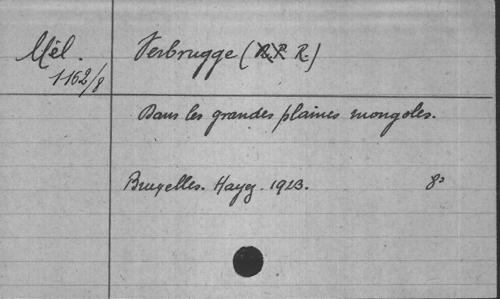 Mél.
1162/8
Verbrugge (R. P. R.)
Dans les grandes plaines mongoles.
Bruxelles. Hayez. 1923. 8°